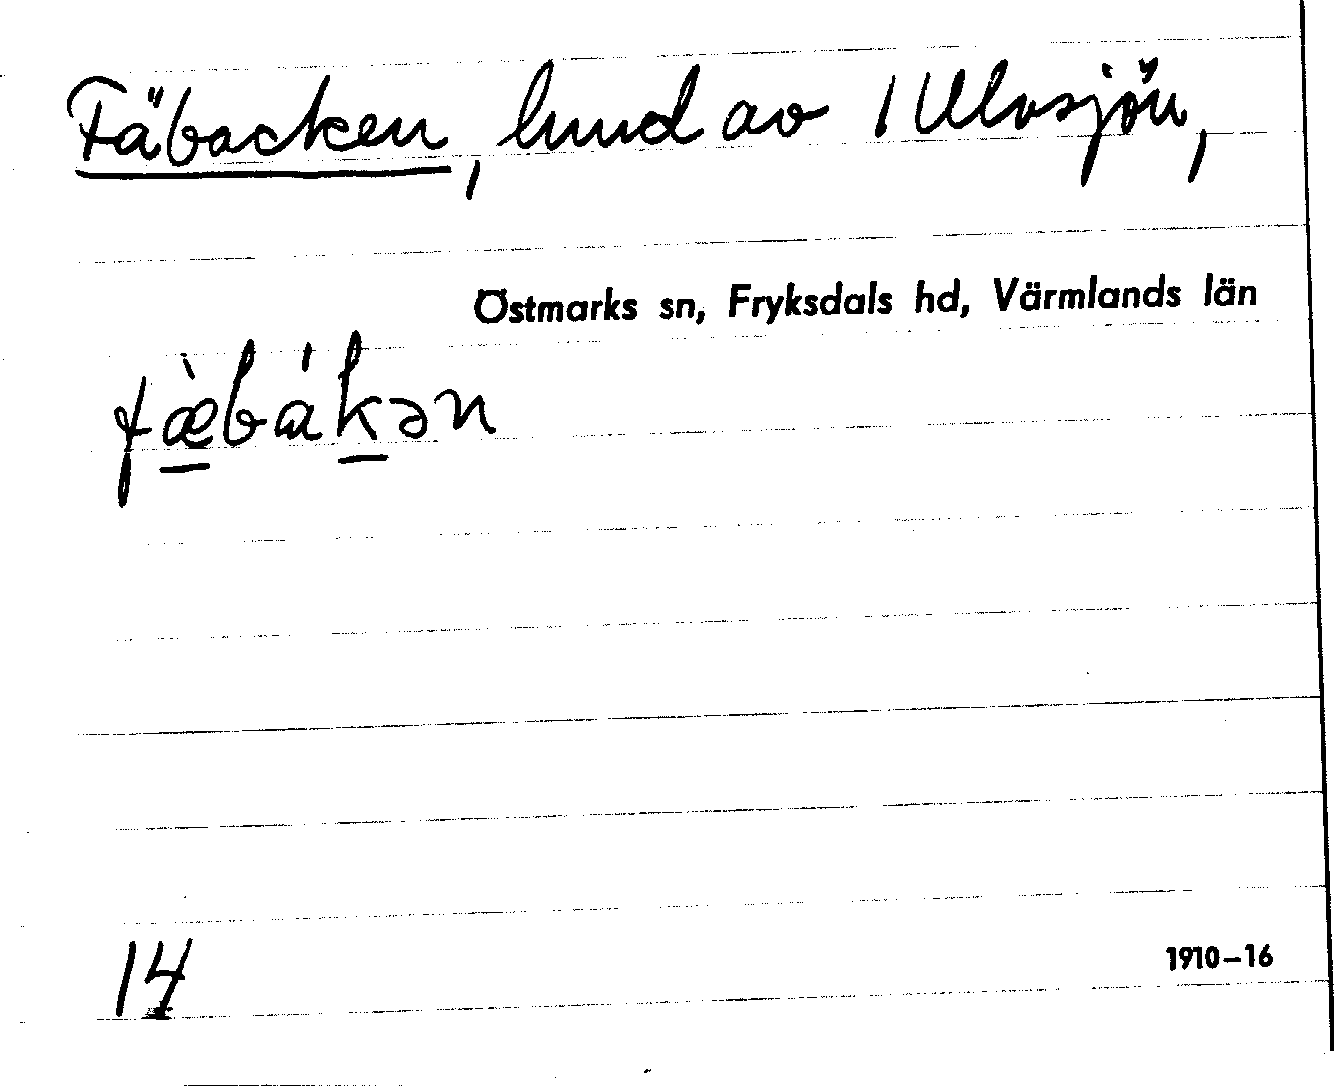 Fäbacken, hmd av 1 Ulvsjön,
Östmarks sn, Fryksdals hd, Värmlands län
fæ̀bákən
14
1910–16